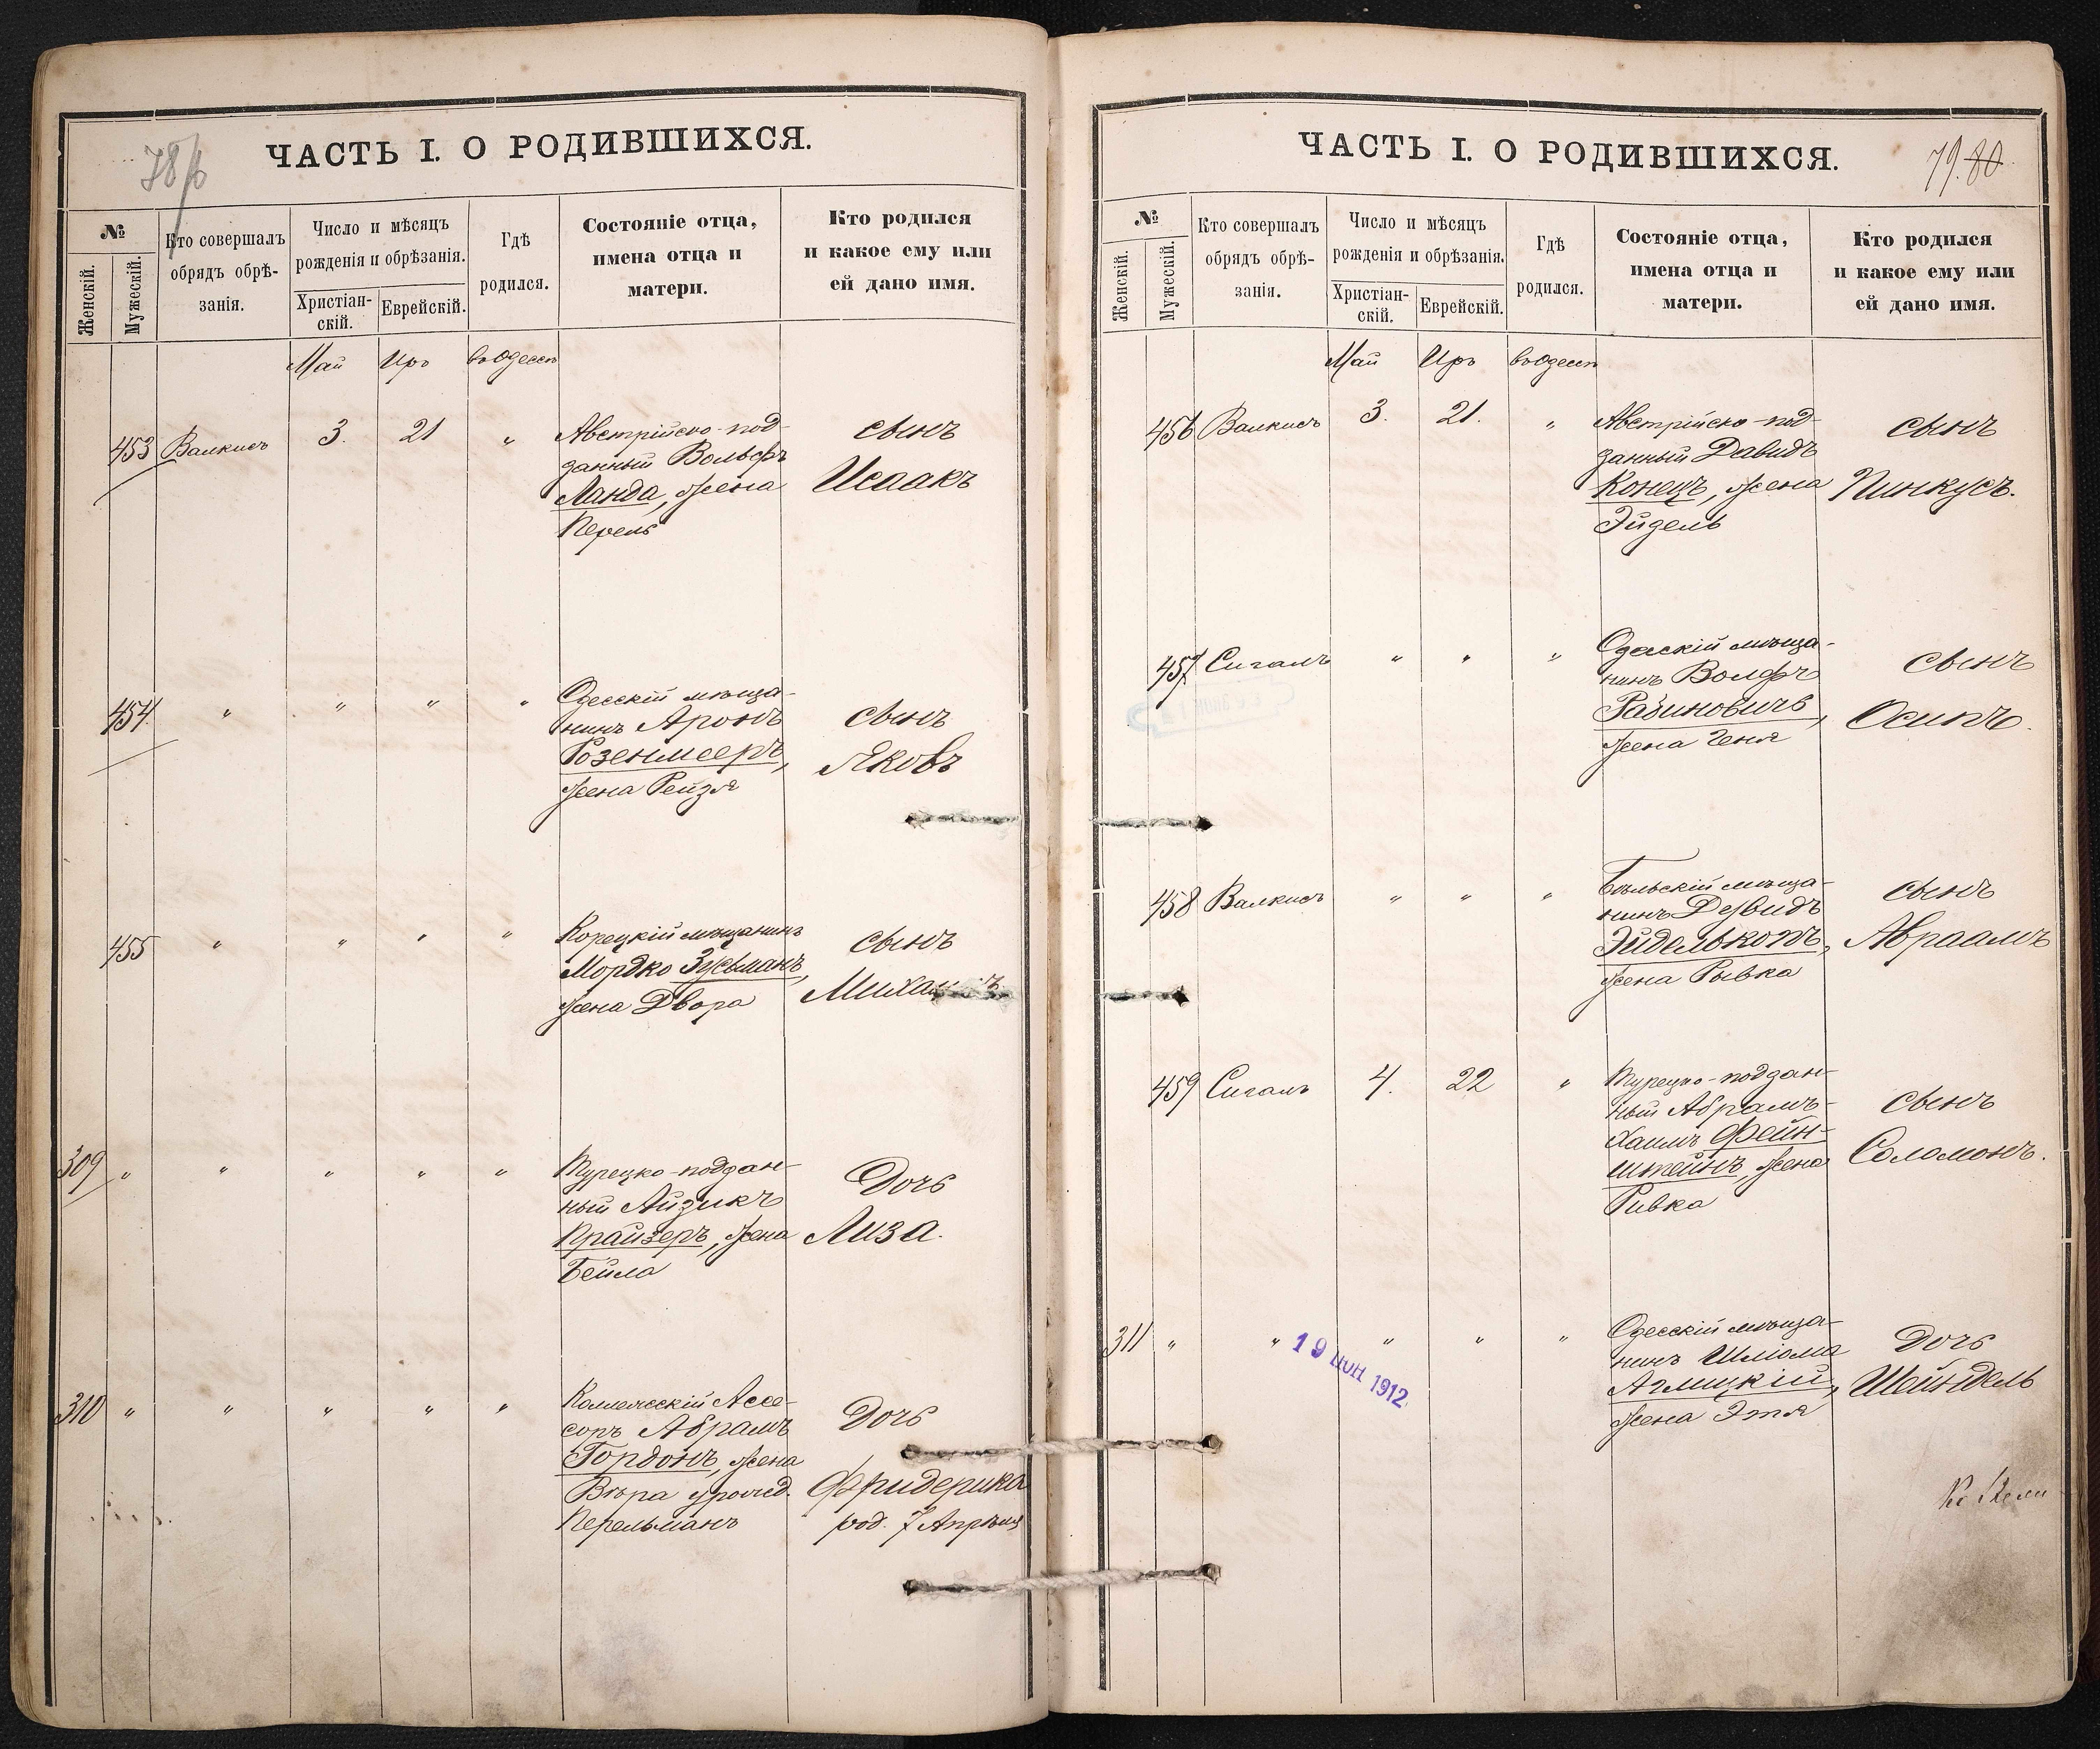 78/6
ЧАСТЬ I. О РОДИВШИХСЯ.
№
Женскій.
Мужескій.
Кто совершалъ
обрядъ обрѣ-
занія.
Число и мѣсяцъ
рожденія и обрѣзанія.
Христіан-
скій.
Еврейскій.
Гдѣ
родился.
Состояніе отца,
имена отца и
матери.
Кто родился
и какое ему или
ей дано имя.
Май Иръ въ Одессѣ
453 Валкисъ 3. 21 "
Австрійско-под-
данный Вольфъ
Ланда, жена
Перель
сынъ
Исаакъ
454 " " " "
Одесскій мѣща-
нинъ Аронъ
Розенмееръ,
жена Рейзя
сынъ
Яковъ
455 " " " "
Корецкій мѣщанинъ
Мордко Зусьманъ,
жена Двора
сынъ
309 " " " " "
Турецко-поддан-
ный Айзикъ
Крайзеръ, жена
Бейла
Дочь
Лиза.
310 " " " " "
Коллежскій Ассе-
соръ Абрамъ
Гордонъ, жена
Вѣра урожд.
Перельманъ
Дочь
Фридерика
род. 7 Апрѣля
79. 80
ЧАСТЬ I. О РОДИВШИХСЯ.
№
Женскій.
Мужескій.
Кто совершалъ
обрядъ обрѣ-
занія.
Число и мѣсяцъ
рожденія и обрѣзанія.
Христіан-
скій.
Еврейскій.
Гдѣ
родился.
Состояніе отца,
имена отца и
матери.
Кто родился
и какое ему или
ей дано имя.
Май Иръ въ Одессѣ
456 Валкисъ 3. 21. "
Австрійско-под-
данный Давидъ
Конецъ, жена
Эйдель
сынъ
Пинкусъ.
457 Сигалъ " " "
Одесскій мѣща-
нинъ Волфъ
Рабиновичъ,
жена Геня
сынъ
Осипъ.
458 Валкисъ " " "
Бѣльскій мѣща-
нинъ Давидъ
Эйделькопъ,
жена Рывка
сынъ
Авраамъ
459 Сигалъ 4. 22 "
Турецко-поддан-
ный Абрамъ-
Хаимъ Фейн-
штейнъ, жена
Ривка
сынъ
Соломонъ.
311 " " " " "
19 ИЮН 1912
Одесскій мѣща-
нинъ Шлiома
Аглицкій,
жена Этя
Дочь
Шейндель